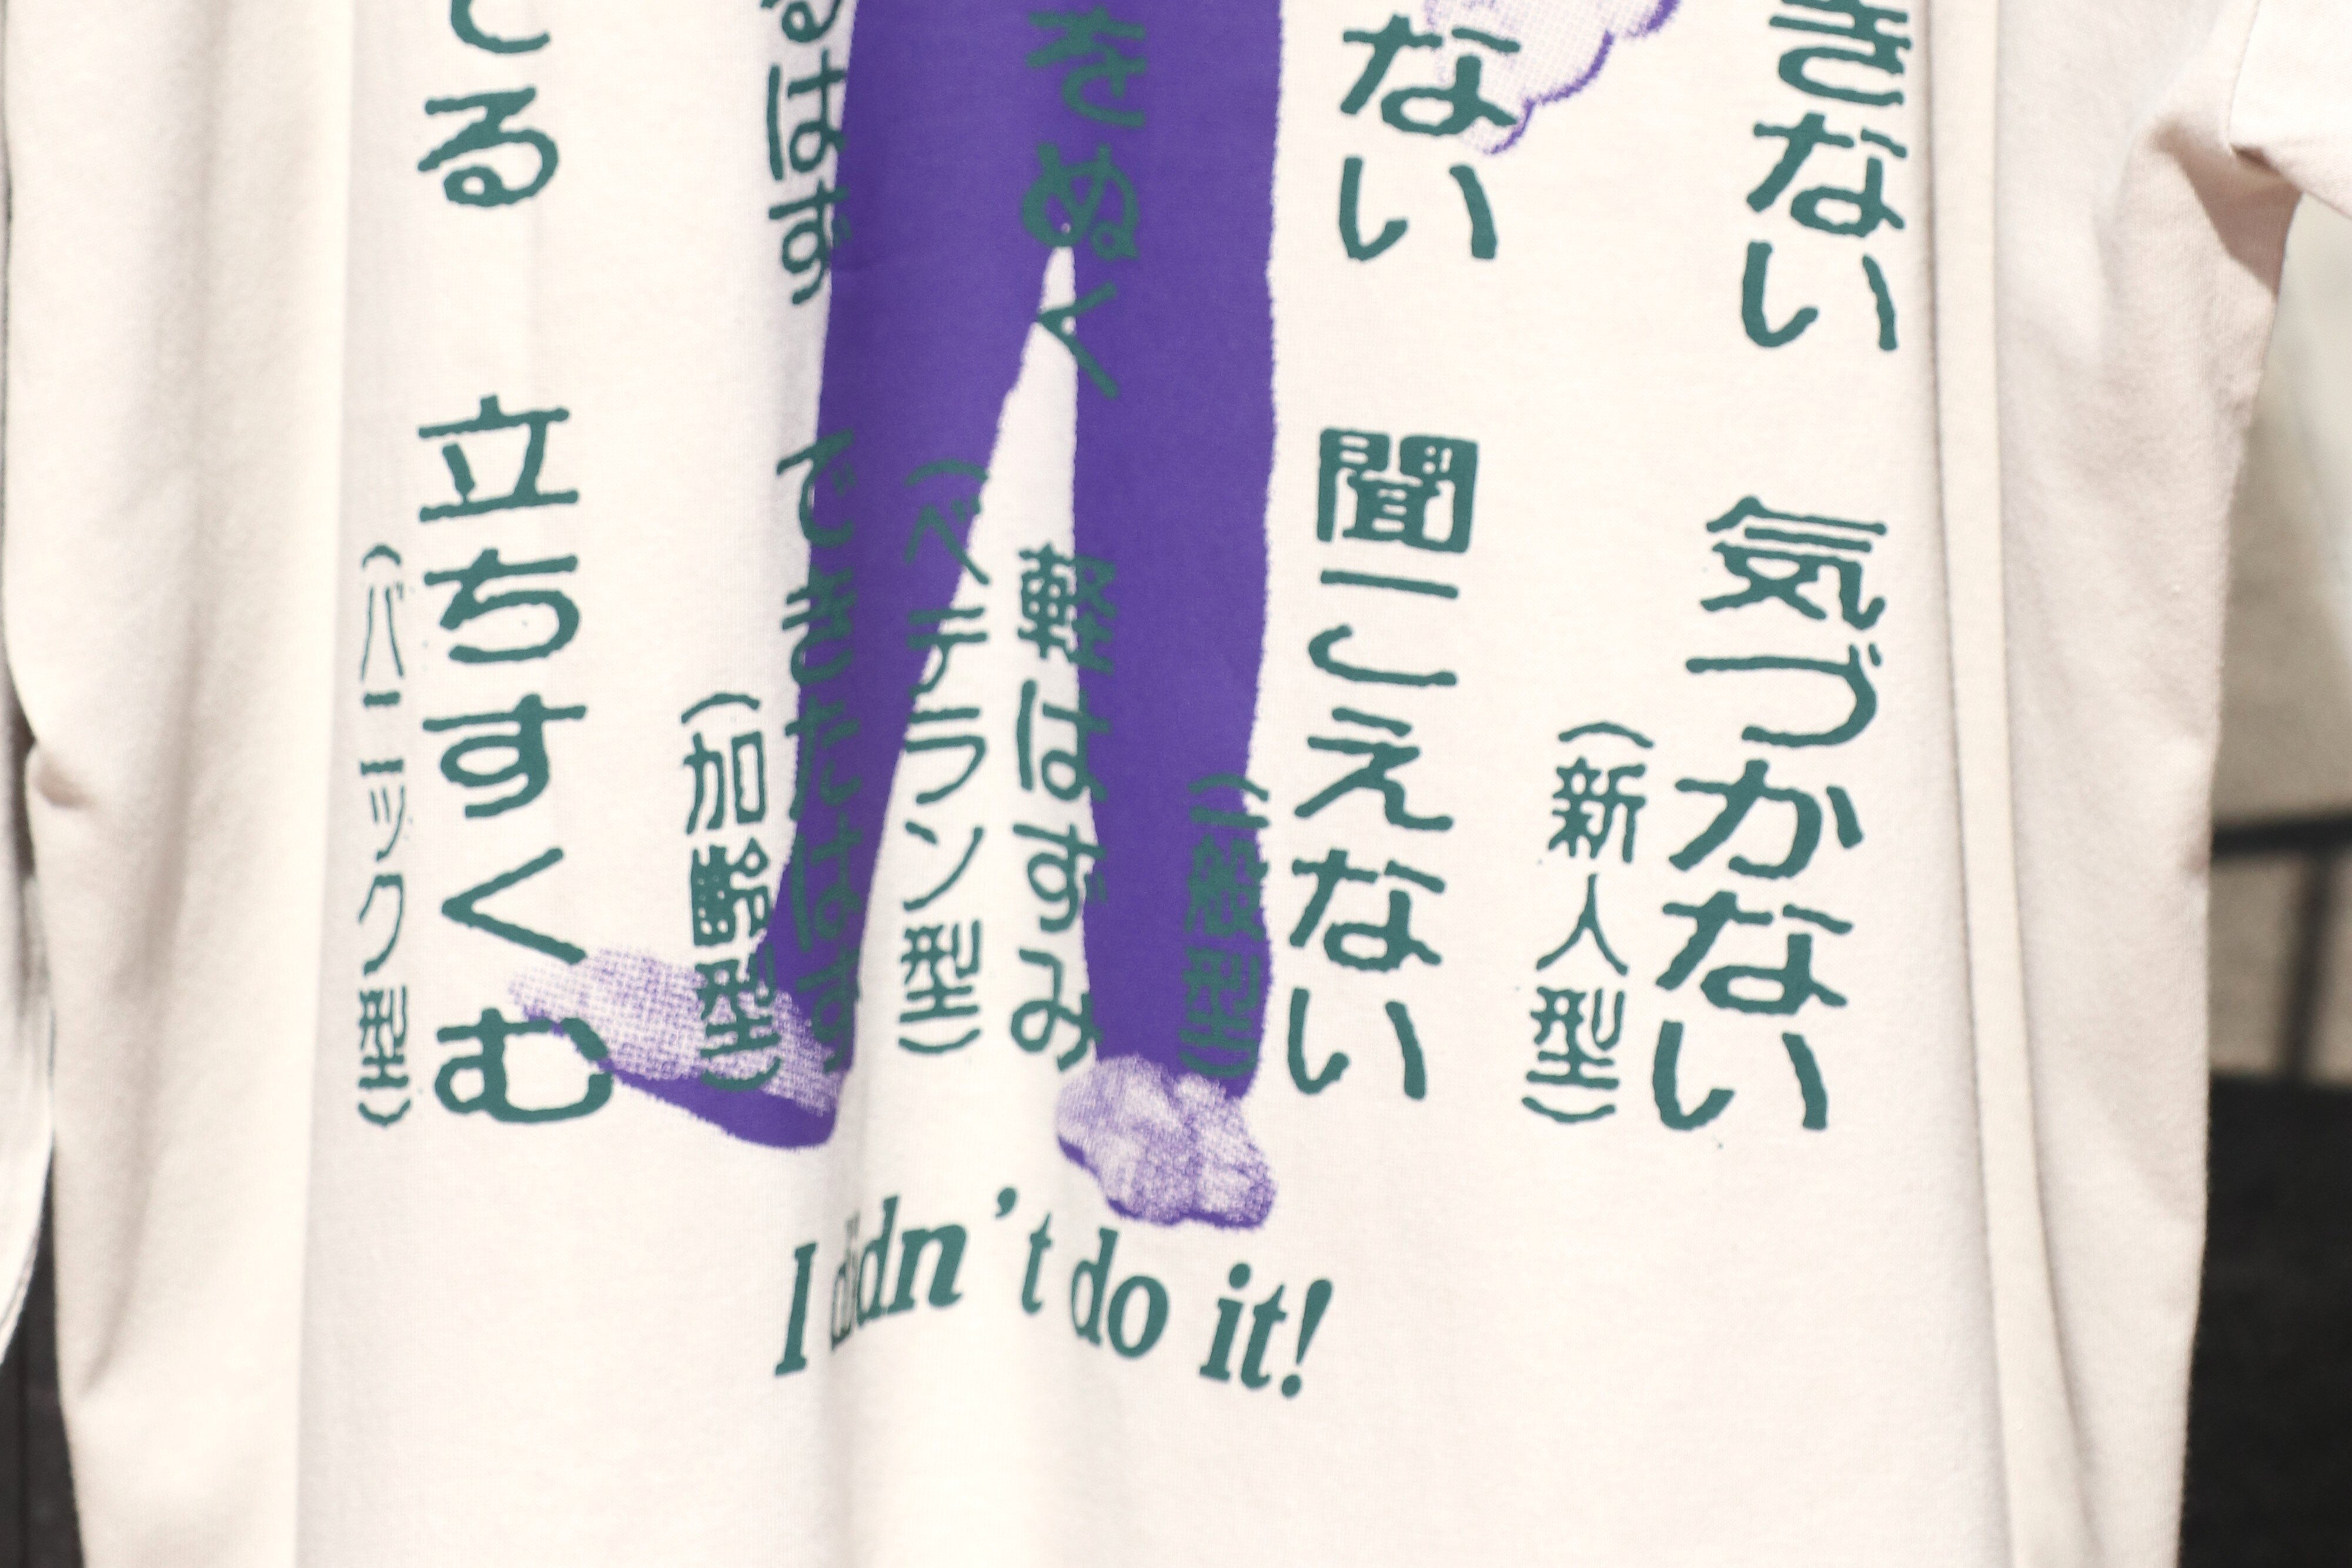 きない 気づかない
(新人型)
ない 聞こえない
(一般型)
をぬく 軽はずみ
(ベテラン型)
るはず できたはず
(加齢型)
る 立ちすくむ
(パニック型)
I didn't do it!